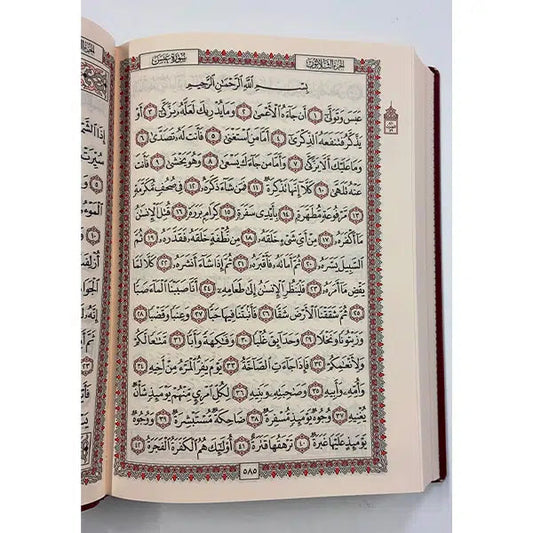 سورة عبس
الجزء الثلاثون
بِسْمِ اللَّهِ الرَّحْمَٰنِ الرَّحِيمِ
عَبَسَ وَتَوَلَّىٰ ١ أَن جَاءَهُ الْأَعْمَىٰ ٢ وَمَا يُدْرِيكَ لَعَلَّهُ يَزَّكَّىٰ ٣ أَوْ
يَذَّكَّرُ فَتَنفَعَهُ الذِّكْرَىٰ ٤ أَمَّا مَنِ اسْتَغْنَىٰ ٥ فَأَنتَ لَهُ تَصَدَّىٰ ٦
وَمَا عَلَيْكَ أَلَّا يَزَّكَّىٰ ٧ وَأَمَّا مَن جَاءَكَ يَسْعَىٰ ٨ وَهُوَ يَخْشَىٰ ٩ فَأَنتَ
عَنْهُ تَلَهَّىٰ ١٠ كَلَّا إِنَّهَا تَذْكِرَةٌ ١١ فَمَن شَاءَ ذَكَرَهُ ١٢ فِي صُحُفٍ مُّكَرَّمَةٍ
١٣ مَّرْفُوعَةٍ مُّطَهَّرَةٍ ١٤ بِأَيْدِي سَفَرَةٍ ١٥ كِرَامٍ بَرَرَةٍ ١٦ قُتِلَ الْإِنسَانُ
مَا أَكْفَرَهُ ١٧ مِنْ أَيِّ شَيْءٍ خَلَقَهُ ١٨ مِن نُّطْفَةٍ خَلَقَهُ فَقَدَّرَهُ ١٩ ثُمَّ
السَّبِيلَ يَسَّرَهُ ٢٠ ثُمَّ أَمَاتَهُ فَأَقْبَرَهُ ٢١ ثُمَّ إِذَا شَاءَ أَنشَرَهُ ٢٢ كَلَّا لَمَّا
يَقْضِ مَا أَمَرَهُ ٢٣ فَلْيَنظُرِ الْإِنسَانُ إِلَىٰ طَعَامِهِ ٢٤ أَنَّا صَبَبْنَا الْمَاءَ صَبًّا
٢٥ ثُمَّ شَقَقْنَا الْأَرْضَ شَقًّا ٢٦ فَأَنبَتْنَا فِيهَا حَبًّا ٢٧ وَعِنَبًا وَقَضْبًا ٢٨
وَزَيْتُونًا وَنَخْلًا ٢٩ وَحَدَائِقَ غُلْبًا ٣٠ وَفَاكِهَةً وَأَبًّا ٣١ مَّتَاعًا لَّكُمْ
وَلِأَنْعَامِكُمْ ٣٢ فَإِذَا جَاءَتِ الصَّاخَّةُ ٣٣ يَوْمَ يَفِرُّ الْمَرْءُ مِنْ أَخِيهِ ٣٤
وَأُمِّهِ وَأَبِيهِ ٣٥ وَصَاحِبَتِهِ وَبَنِيهِ ٣٦ لِكُلِّ امْرِئٍ مِّنْهُمْ يَوْمَئِذٍ شَأْنٌ
يُغْنِيهِ ٣٧ وُجُوهٌ يَوْمَئِذٍ مُّسْفِرَةٌ ٣٨ ضَاحِكَةٌ مُّسْتَبْشِرَةٌ ٣٩ وَوُجُوهٌ
يَوْمَئِذٍ عَلَيْهَا غَبَرَةٌ ٤٠ تَرْهَقُهَا قَتَرَةٌ ٤١ أُولَٰئِكَ هُمُ الْكَفَرَةُ الْفَجَرَةُ ٤٢
٥٨٥